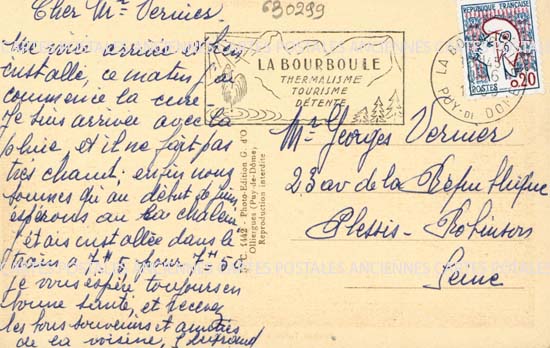 630299
Cher Mr Vernier.
Me voici arrivée et bien
installée, ce matin j'ai
commencé la cure
Je suis arrivée avec la
pluie, et il ne fait pas
très chaud; enfin nous
sommes qu'au début de juin,
espérons au la chaleur
J'étais installée dans le
train a 7H5, pour 7H50
Je vous espère toujours en
bonne santé, et recevez
les bons souvenirs et amitiés
de la voisine,
LA BOURBOULE
THERMALISME
TOURISME
DÉTENTE
REPUBLIQUE FRANÇAISE
0,20
POSTES
PUY-DE-DOME
4442 - Photo-Edition G. d'O
Olliergues (Puy-de-Dôme)
Reproduction interdite
Mr Georges Vernier
23 av de la République
Plessis-Robinson
Seine
CARTES POSTALES ANCIENNES